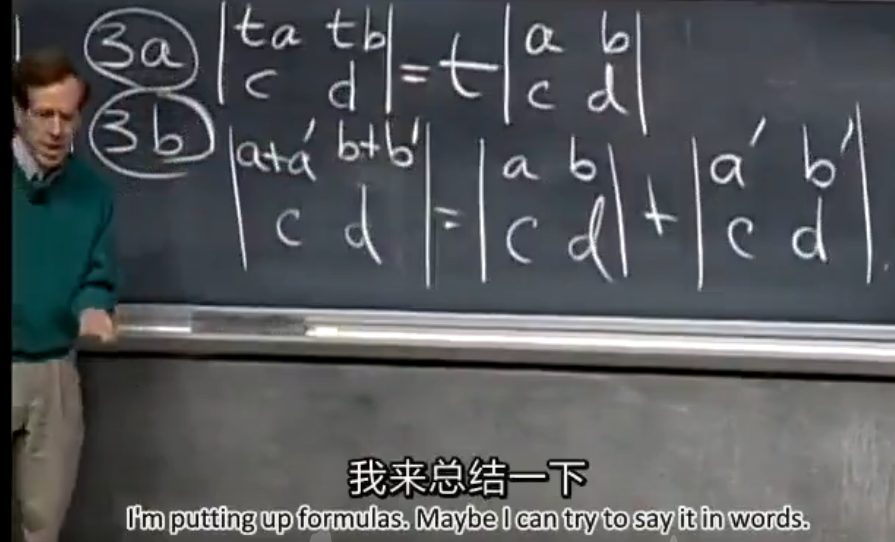 3a |ta tb| = t |a b|
|c d| |c d|
3b |a+a' b+b'| = |a b| + |a' b'|
|c d| |c d| |c d|.
我来总结一下
I'm putting up formulas. Maybe I can try to say it in words.